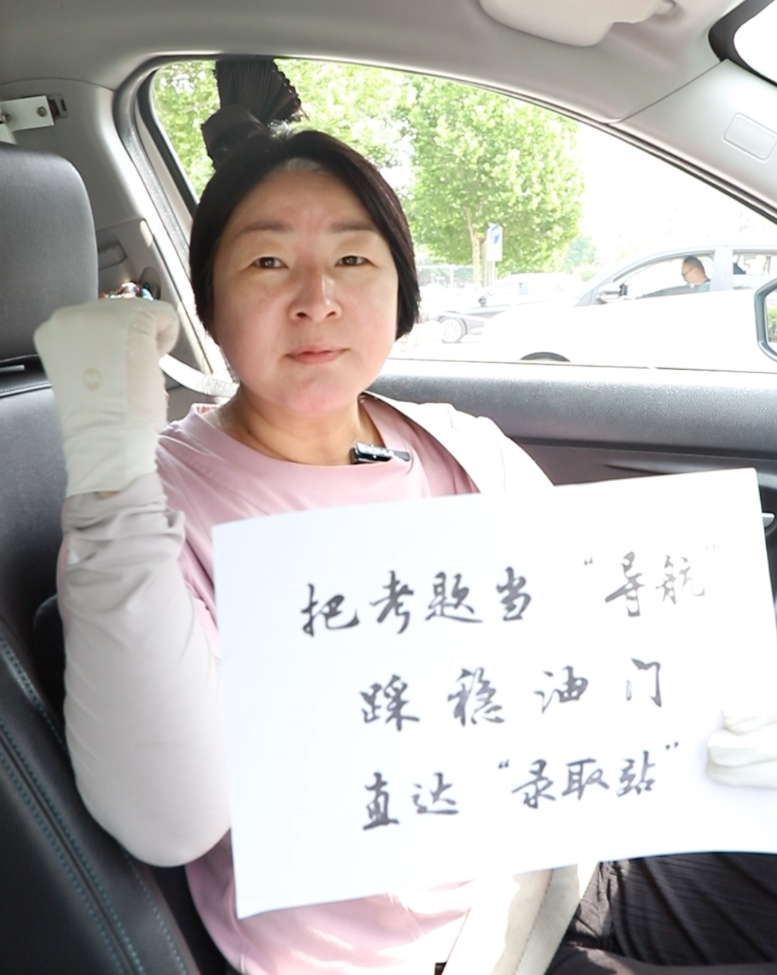 把考题当“导航”
踩稳油门
直达“录取站”